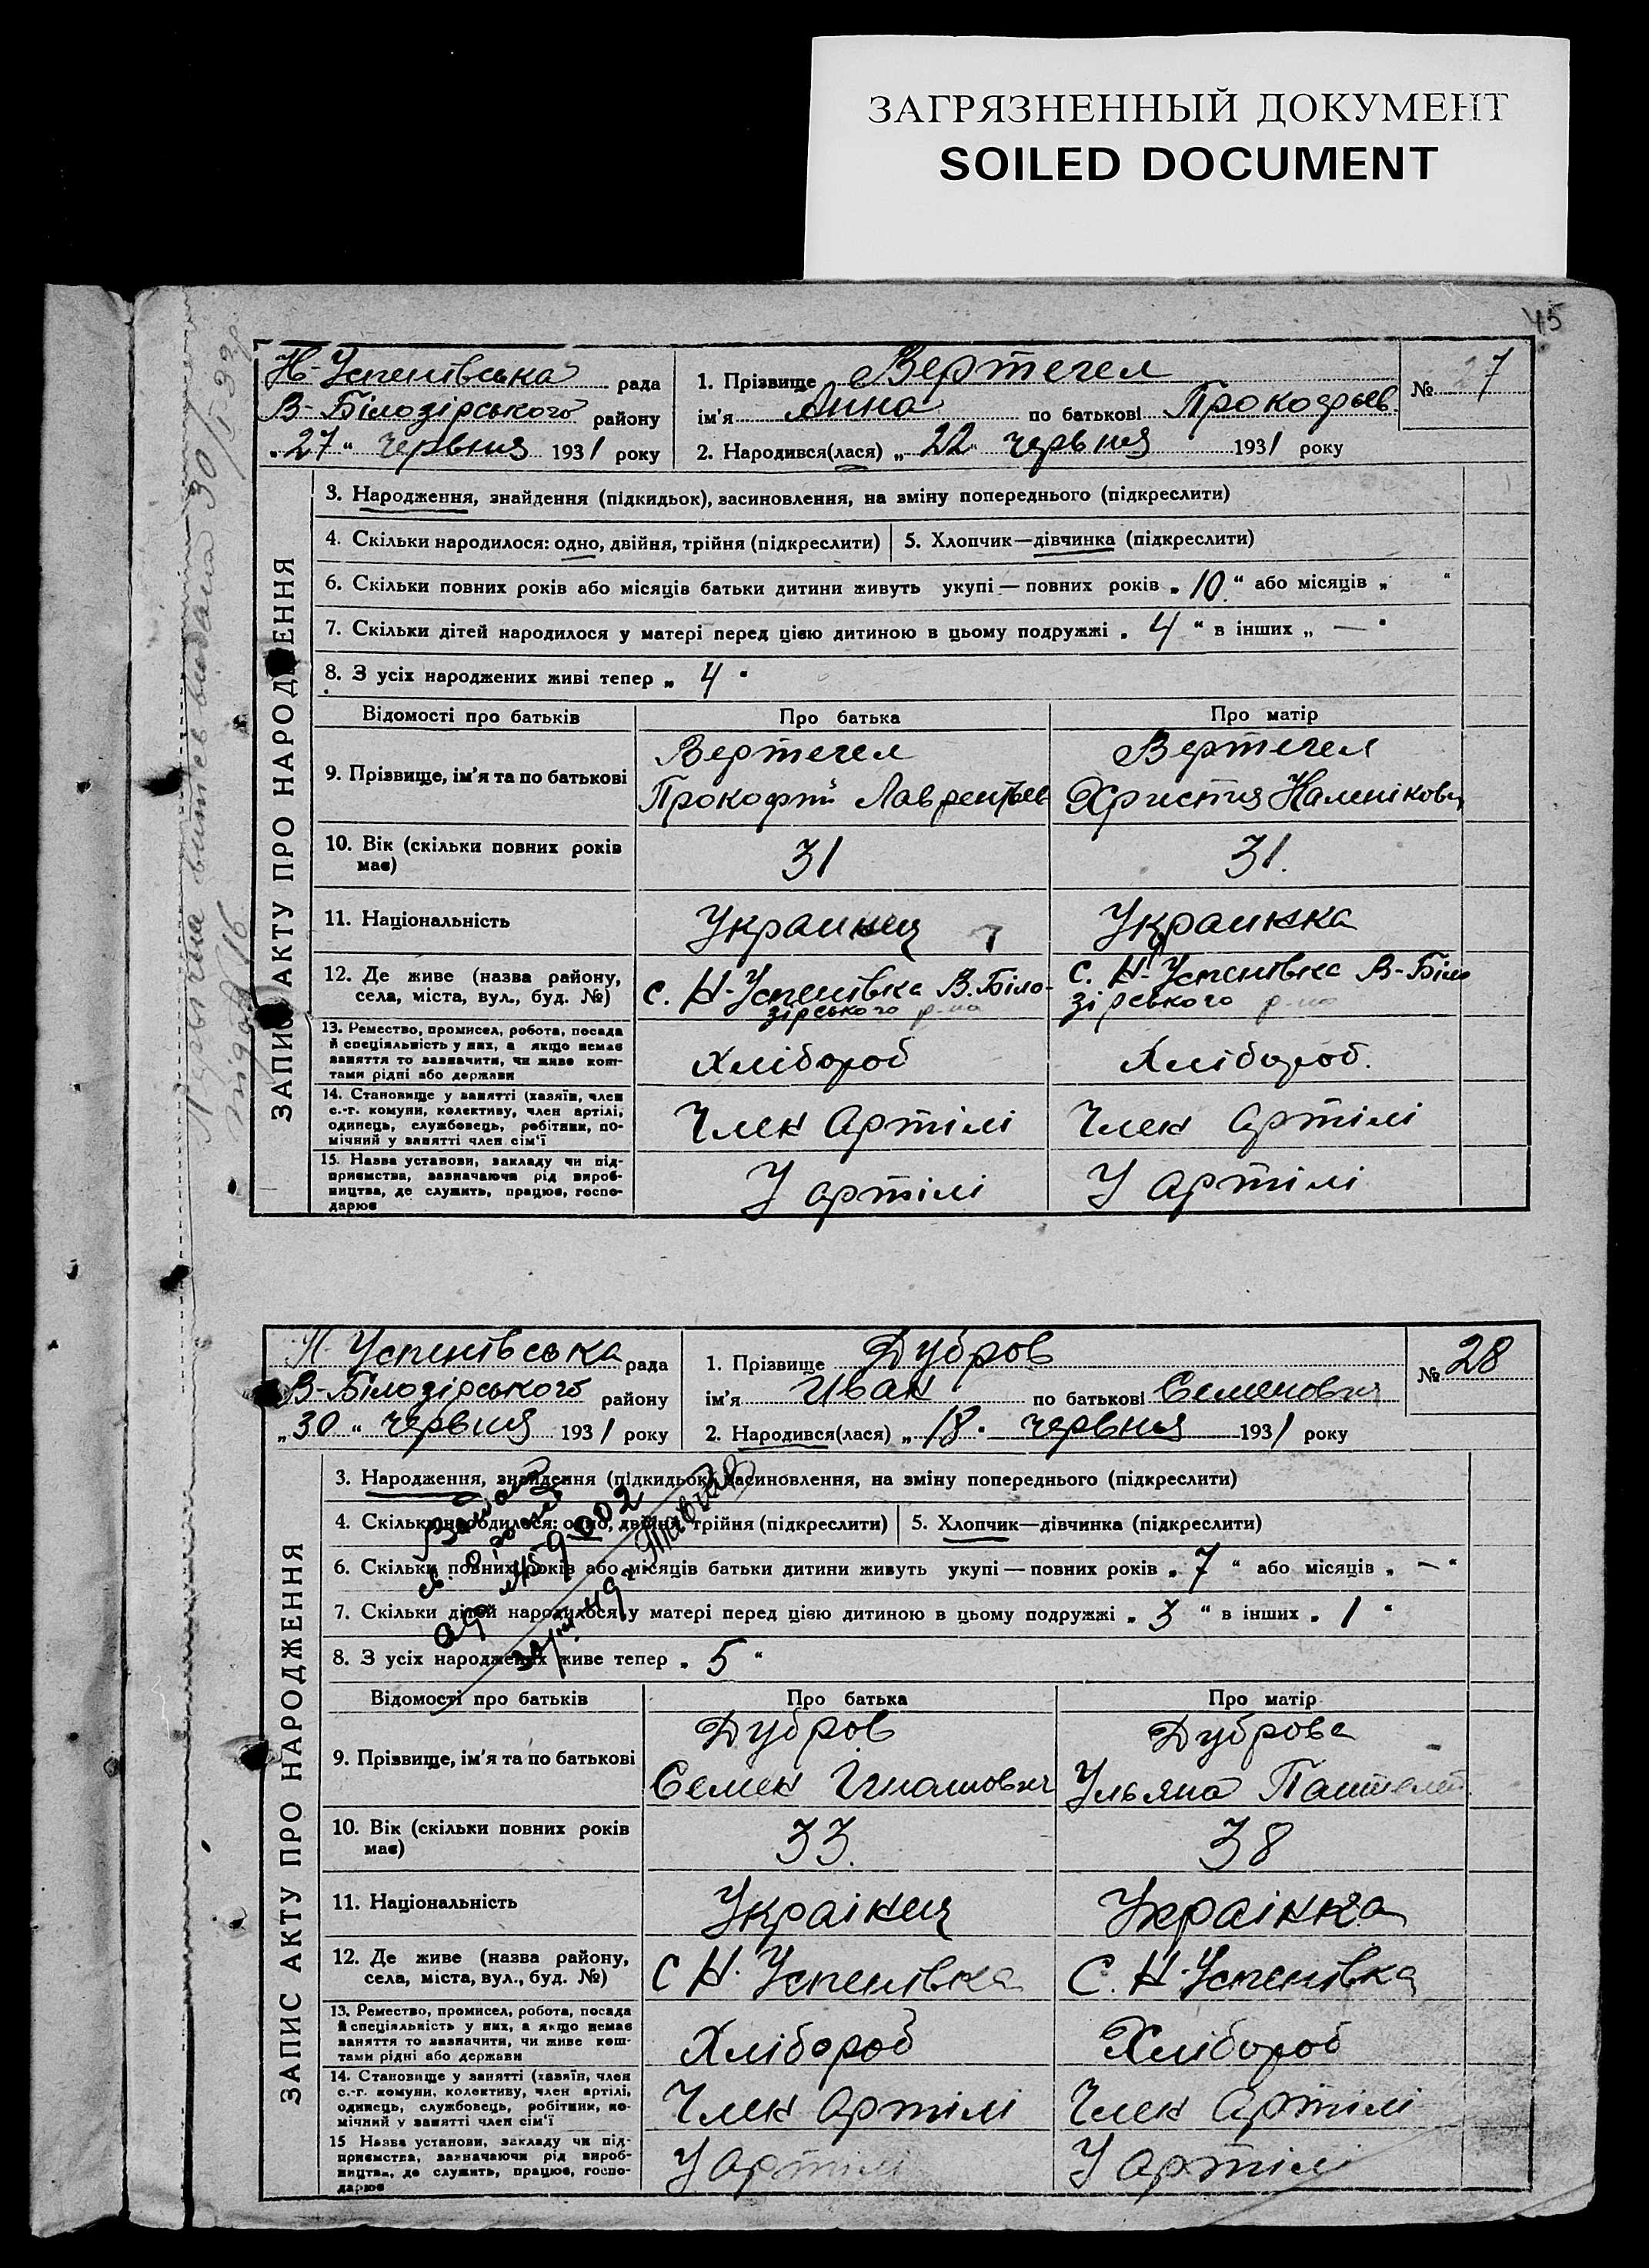 ЗАГРЯЗНЕННЫЙ ДОКУМЕНТ
SOILED DOCUMENT
45
Н-Успенівська рада
В-Білозірського району
„27“ червня 1931 року
1. Прізвище Вертегел
ім'я Анна по батькові Прокофьев.
2. Народився(лася) „22“ червня 1931 року
№ 27
ЗАПИС АКТУ ПРО НАРОДЖЕННЯ
3. Народження, знайдення (підкидьок), васиновлення, на зміну попереднього (підкреслити)
4. Скільки народилося: одно, двійня, трійня (підкреслити) 5. Хлопчик—дівчинка (підкреслити)
6. Скільки повних років або місяців батьки дитини живуть укупі — повних років „10“ або місяців „ “
7. Скільки дітей народилося у матері перед цією дитиною в цьому подружжі „4“ в інших „—“
8. З усіх народжених живі тепер „4“
Відомості про батьків Про батька Про матір
9. Прізвище, ім'я та по батькові
Вертегел
Прокофій Лаврентьев
Вертегел
Христия
10. Вік (скільки повних років має) 31 31.
11. Національність Украинец Украинка
12. Де живе (назва району,
села, міста, вул., буд. №)
с. Н-Успенівка В.Біло-
зірського р-на
с. Н-Успенівка В-Біло
зірського р-на
13. Ремество, промисел, робота, посада
й спеціяльність у них, а якщо немає
заняття то зазначити, чи живе кош-
тами рідні або держави
Хлібороб Хлібороб.
14. Становище у занятті (хазяїн, член
с.-г. комуни, колективу, член артілі,
одинець, службовець, робітник, по-
мічний у занятті член сім'ї
Член Артілі Член Артілі
15. Назва установи, закладу чи під-
приємства, зазначаючи рід вироб-
ництва, де служить, працює, госпо-
дарює
У артілі У артілі
Успенівська рада
В-Білозірського району
„30“ червня 1931 року
1. Прізвище Дубров
ім'я Иван по батькові Семенович
2. Народився(лася) „18“ червня 1931 року
№ 28
ЗАПИС АКТУ ПРО НАРОДЖЕННЯ
3. Народження, знайдення (підкидьок), васиновлення, на зміну попереднього (підкреслити)
4. Скільки народилося: одно, двійня, трійня (підкреслити) 5. Хлопчик—дівчинка (підкреслити)
6. Скільки повних років або місяців батьки дитини живуть укупі — повних років „7“ або місяців „—“
7. Скільки дітей народилося у матері перед цією дитиною в цьому подружжі „3“ в інших „1“
8. З усіх народжених живе тепер „5“
Відомості про батьків Про батька Про матір
9. Прізвище, ім'я та по батькові
Дубров
Семен Игнатович
Дуброва
Ульяна
10. Вік (скільки повних років має) 33. 38
11. Національність Українец Українка
12. Де живе (назва району,
села, міста, вул., буд. №)
С Н. Успенівка С. Н-Успенівка
13. Ремество, промисел, робота, посада
й спеціяльність у них, а якщо немає
заняття то зазначити, чи живе кош-
тами рідні або держави
Хлібороб Хлібороб
14. Становище у занятті (хазяїн, член
с.-г. комуни, колективу, член артілі,
одинець, службовець, робітник, по-
мічний у занятті член сім'ї
Член Артілі Член Артілі
15 Назва установи, закладу чи під-
приємства, зазначаючи рід вироб-
ництва, де служить, працює, госпо-
дарює
У Артілі У Артілі